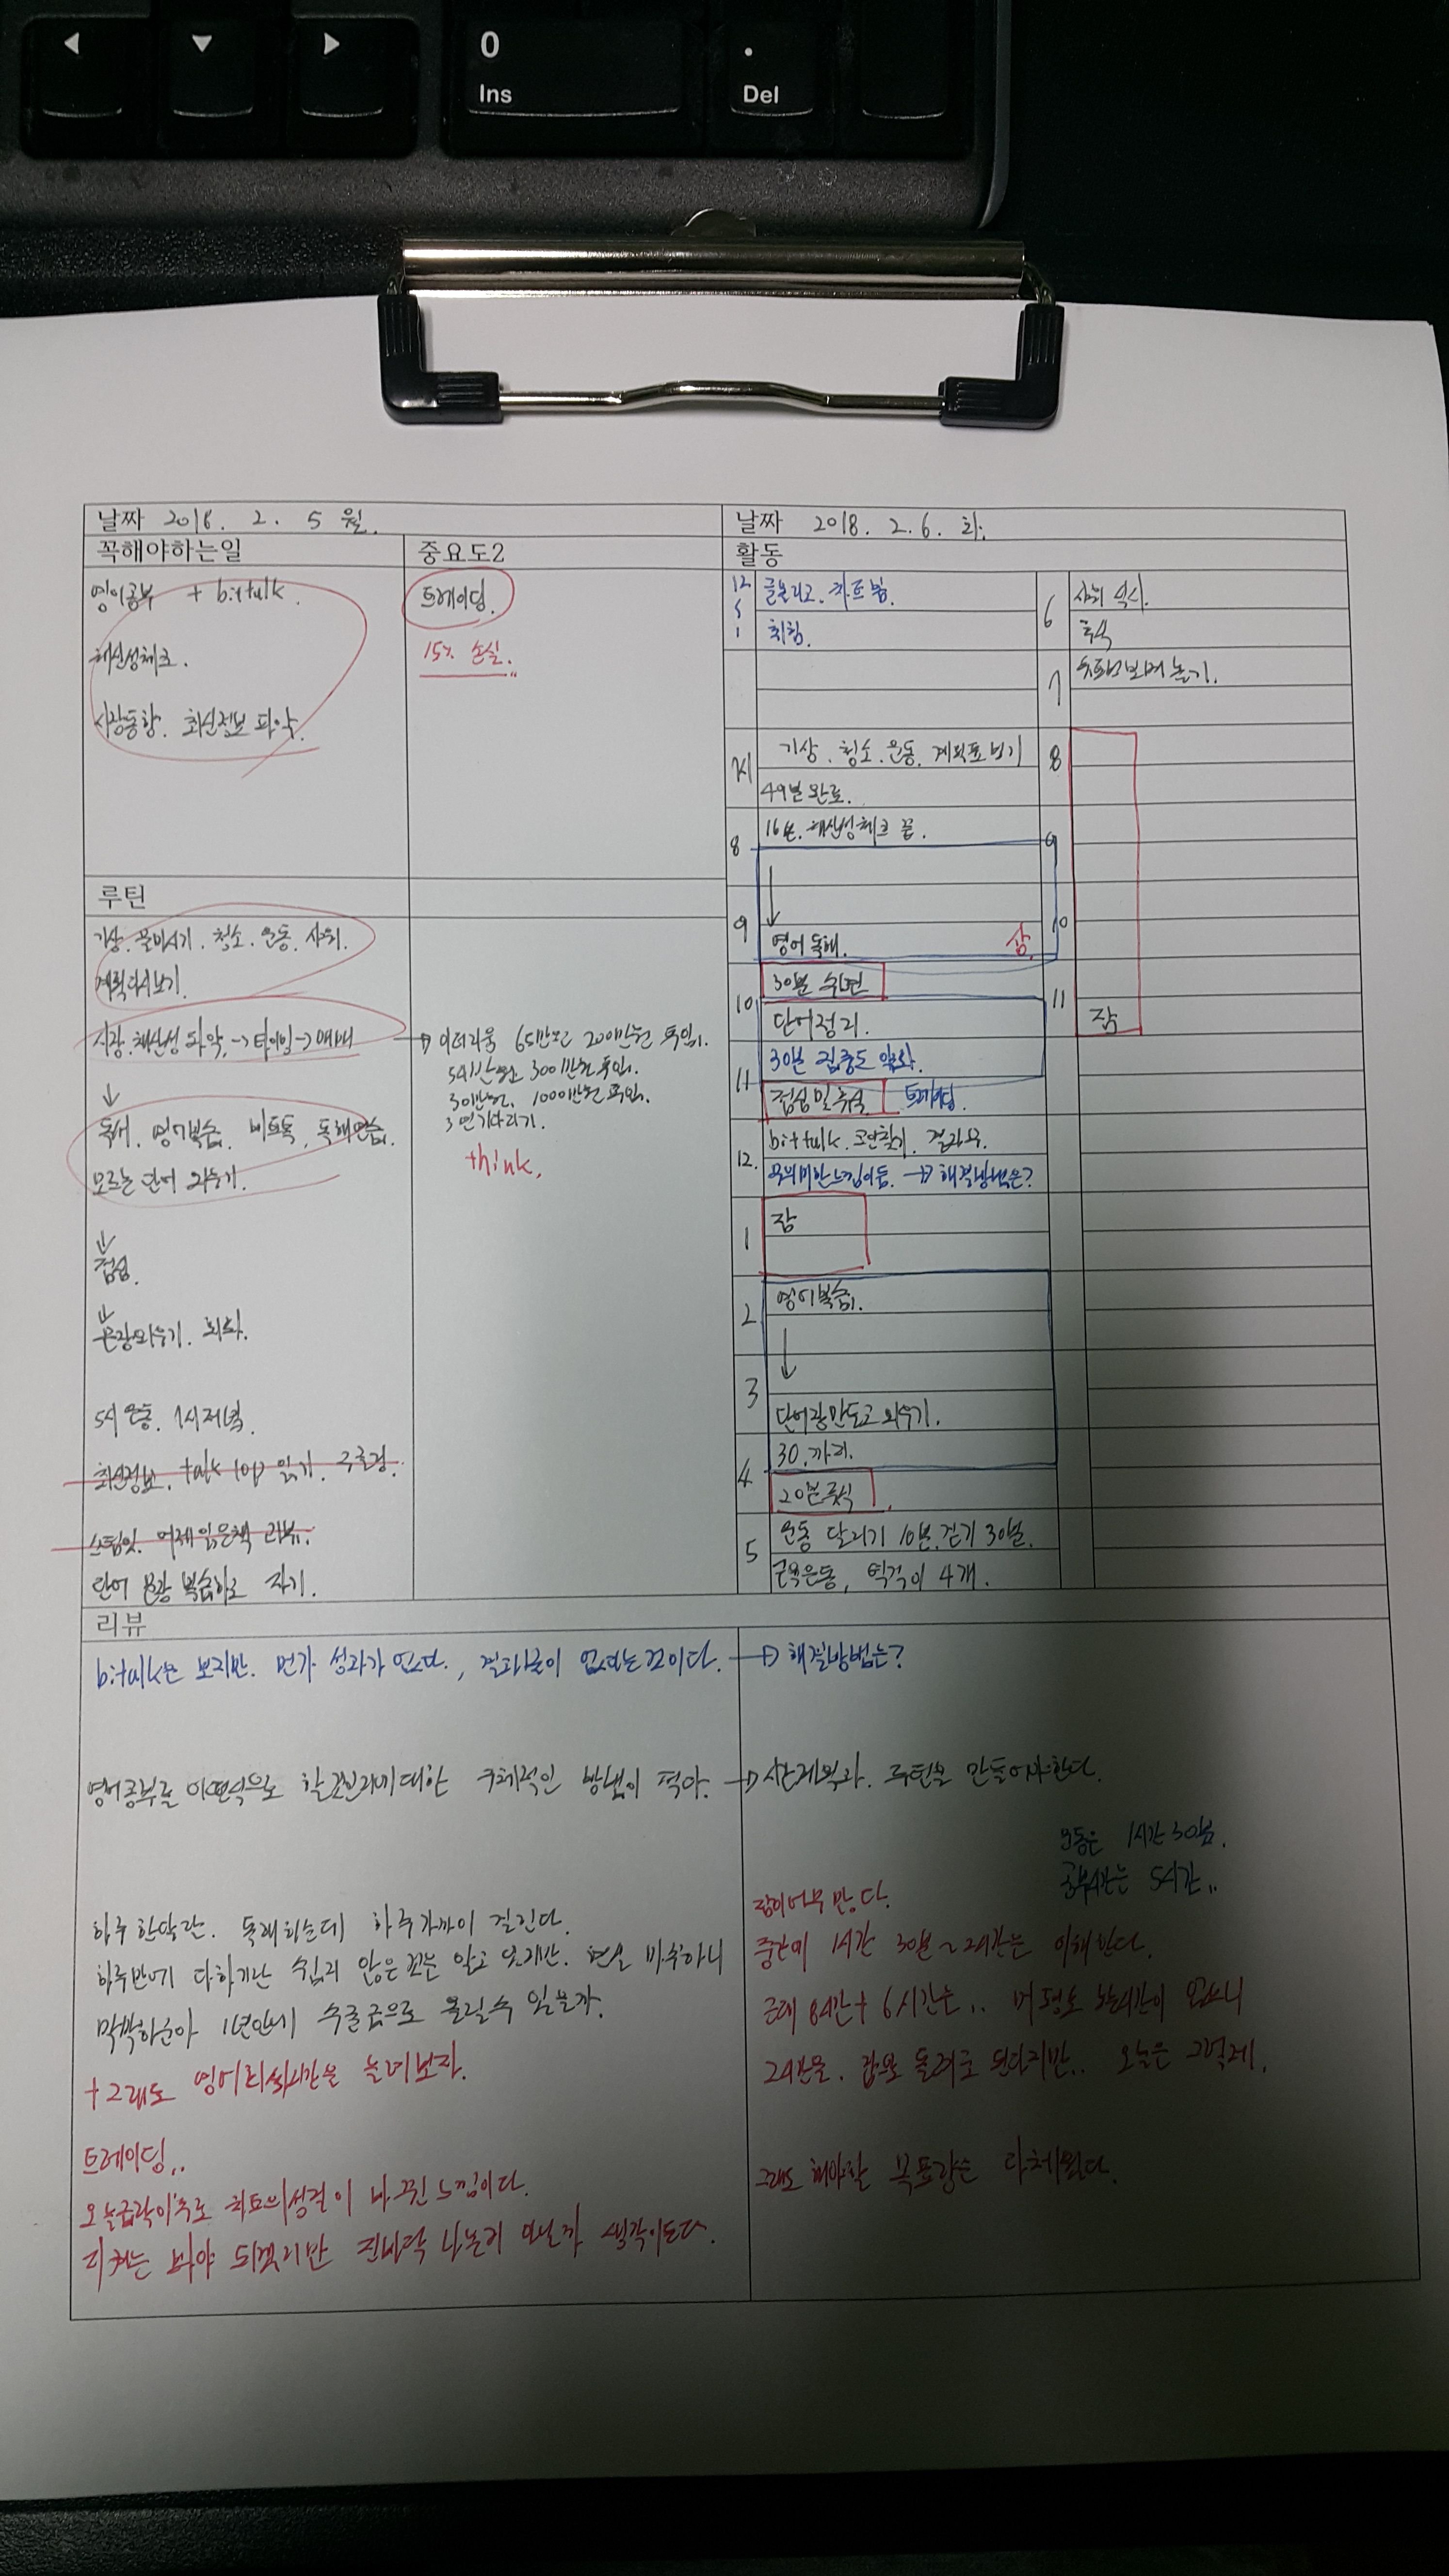 0
Ins
.
Del
날짜 2018. 2. 5 월.
날짜 2018. 2. 6. 화.
꼭해야하는일
중요도2
활동
영어공부 + bittalk.
채산성체크.
시장동향. 최신정보 파악.
트레이딩.
15% 손실.
루틴
기상. 물마시기. 청소. 운동. 샤워.
계획다시보기.
시장. 채산성 파악. -> 타이밍 -> 매매
↓
독서. 영어복습. 비트톡, 독해연습.
모르는 단어 외우기.
↓
점심.
↓
문장외우기. 회화.
5시 운동. 1시 저녁.
최신정보. talk top 읽기.
스팀잇. 어제읽은책 리뷰.
단어 문장 복습하고 자기.
→ 이더리움 65만원 200만원 투입.
54만원 300만원 투입.
30만원, 1000만원 투입.
3년기다리기.
think,
12
1
글올리고. 차트봄.
취침.
기상. 청소. 운동. 계획표보기
49분 완료.
8
16분. 채산성체크 끝.
9
↓
영어 독해.
상.
10
30분 수면
단어정리.
11
30분 집중도 약화.
점심 및 휴식 트레이딩.
12.
bittalk. 코인찾기. 결과무.
무의미한느낌이듬. → 해결방법은?
1
잠
2
영어복습.
↓
3
단어장만들고 외우기.
4
30.까지.
20분휴식
5
운동 달리기 10분. 걷기 30분.
근력운동, 턱걸이 4개.
6
샤워 식사.
휴식
7
유튜브보며 놀기.
8
9
10
11
잠
리뷰
bitalk은 보지만. 뭔가 성과가 없다., 결과물이 없다는것이다. → 해결방법은?
영어공부를 의식적으로 할것인지에대한 구체적인 방법이 적어. → 시간계획과. 루틴을 만들어야한다.
운동은 1시간 30분.
공부시간은 5시간..
하루 한약관. 독해하는데 하루가까이 걸린다.
하루만에 다하기란 쉽지 않은것은 알고 있지만. 현실 마주하니
막막하구나 1년안에 수준급으로 올릴수 있을까.
+ 그래도 영어회화시간을 늘려보자.
트레이딩..
오늘급락이후로 차트의성격이 바뀐느낌이다.
더 봐야 되겠지만 진바닥 나온거 아닐까 생각이든다.
잠이너무 많다.
중간에 1시간 30분~2시간는 이해한다.
근데 8시간 + 6시간은.. 버릴도 노는시간이 없으니
24시간을. 잠으로 돌려도 된다지만.. 오늘은 그렇게.
그래도 해야할 목표량은 다채웠다.